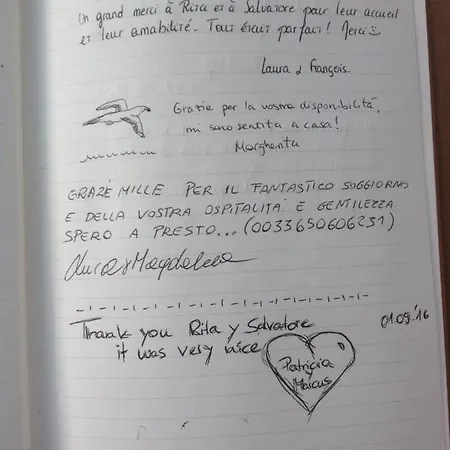 Un grand merci à Rita et à Salvatore pour leur accueil
et leur amabilité. Tout était parfait! Merci
Laura & François.
Grazie per la vostra disponibilità,
mi sono sentita a casa!
Margherita
GRAZE MILLE PER IL FANTASTICO SOGGIORNO
E DELLA VOSTRA OSPITALITÀ E GENTILEZZA
SPERO A PRESTO... (0033650606231)
Magdalena
Thank you Rita y Salvatore
01.09.'16
it was very nice
Patricia
y
Marcus